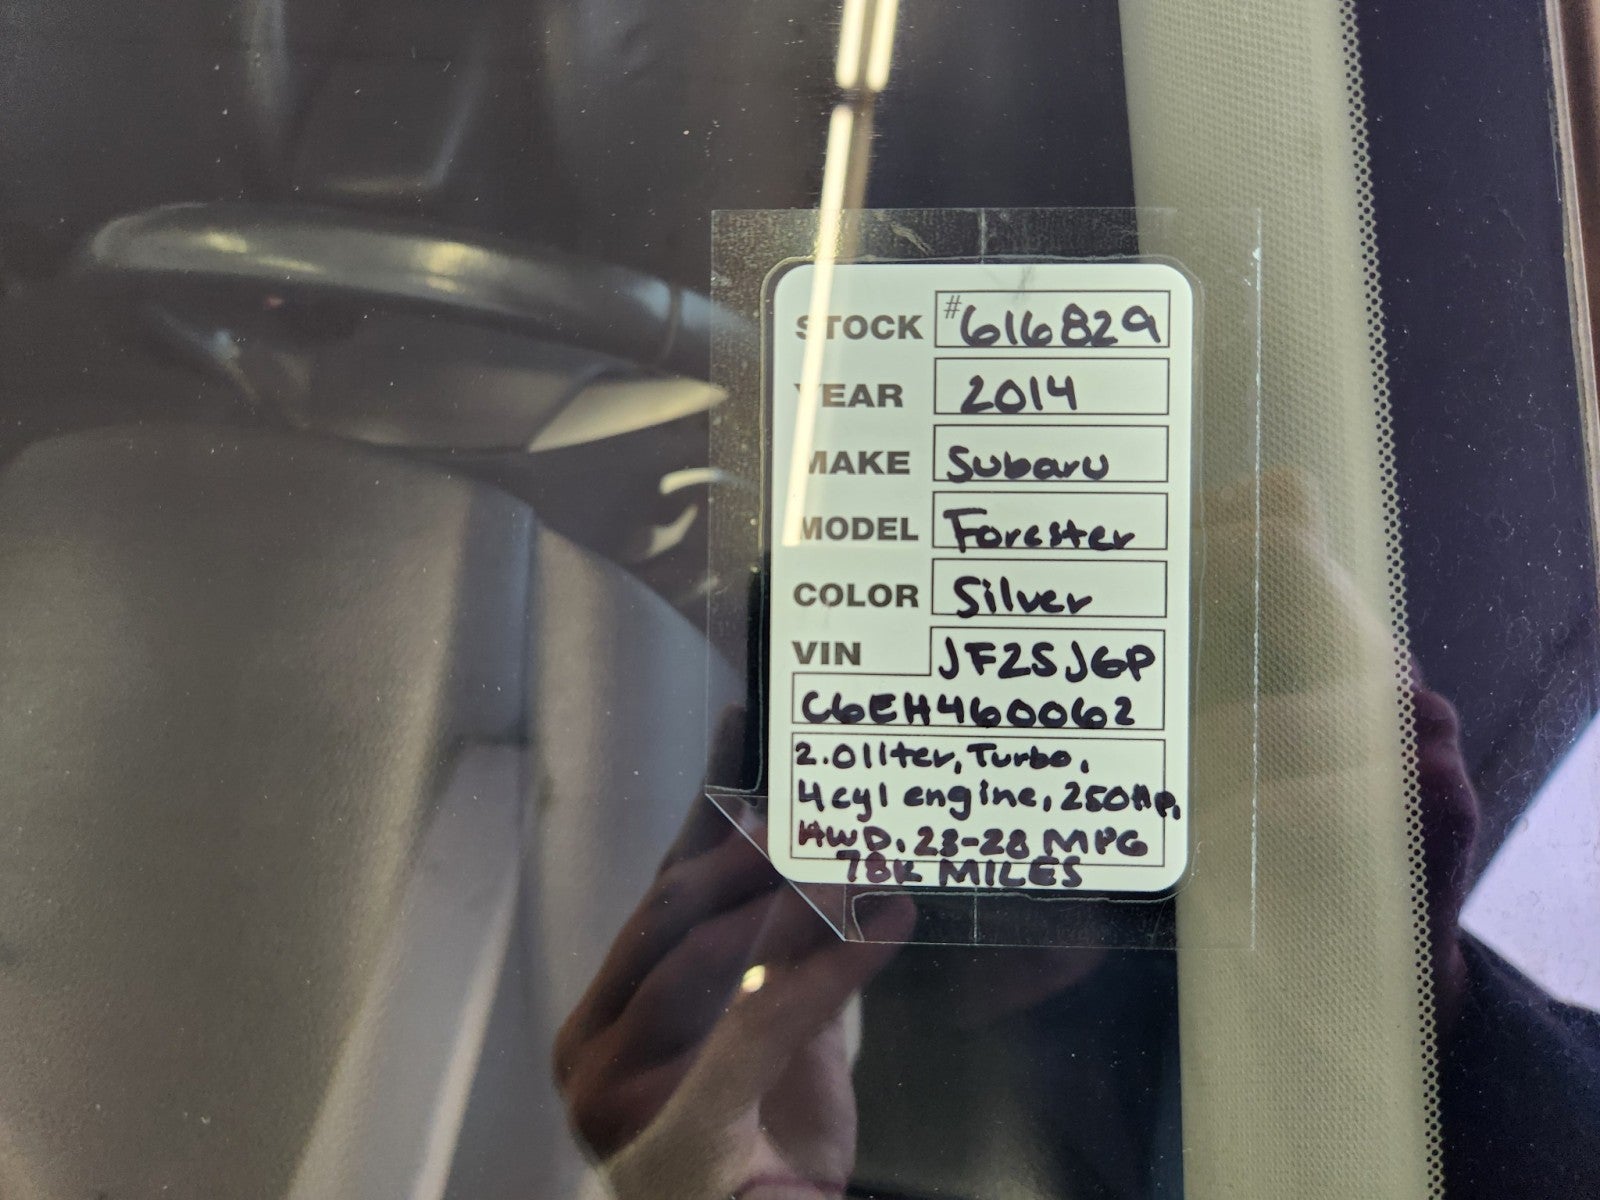 STOCK #616829
YEAR 2014
MAKE Subaru
MODEL Forester
COLOR Silver
VIN JF2SJGP
C6EH460062
2.0liter, Turbo,
4cyl engine, 250Hp,
AWD. 23-28 MPG
78K MILES